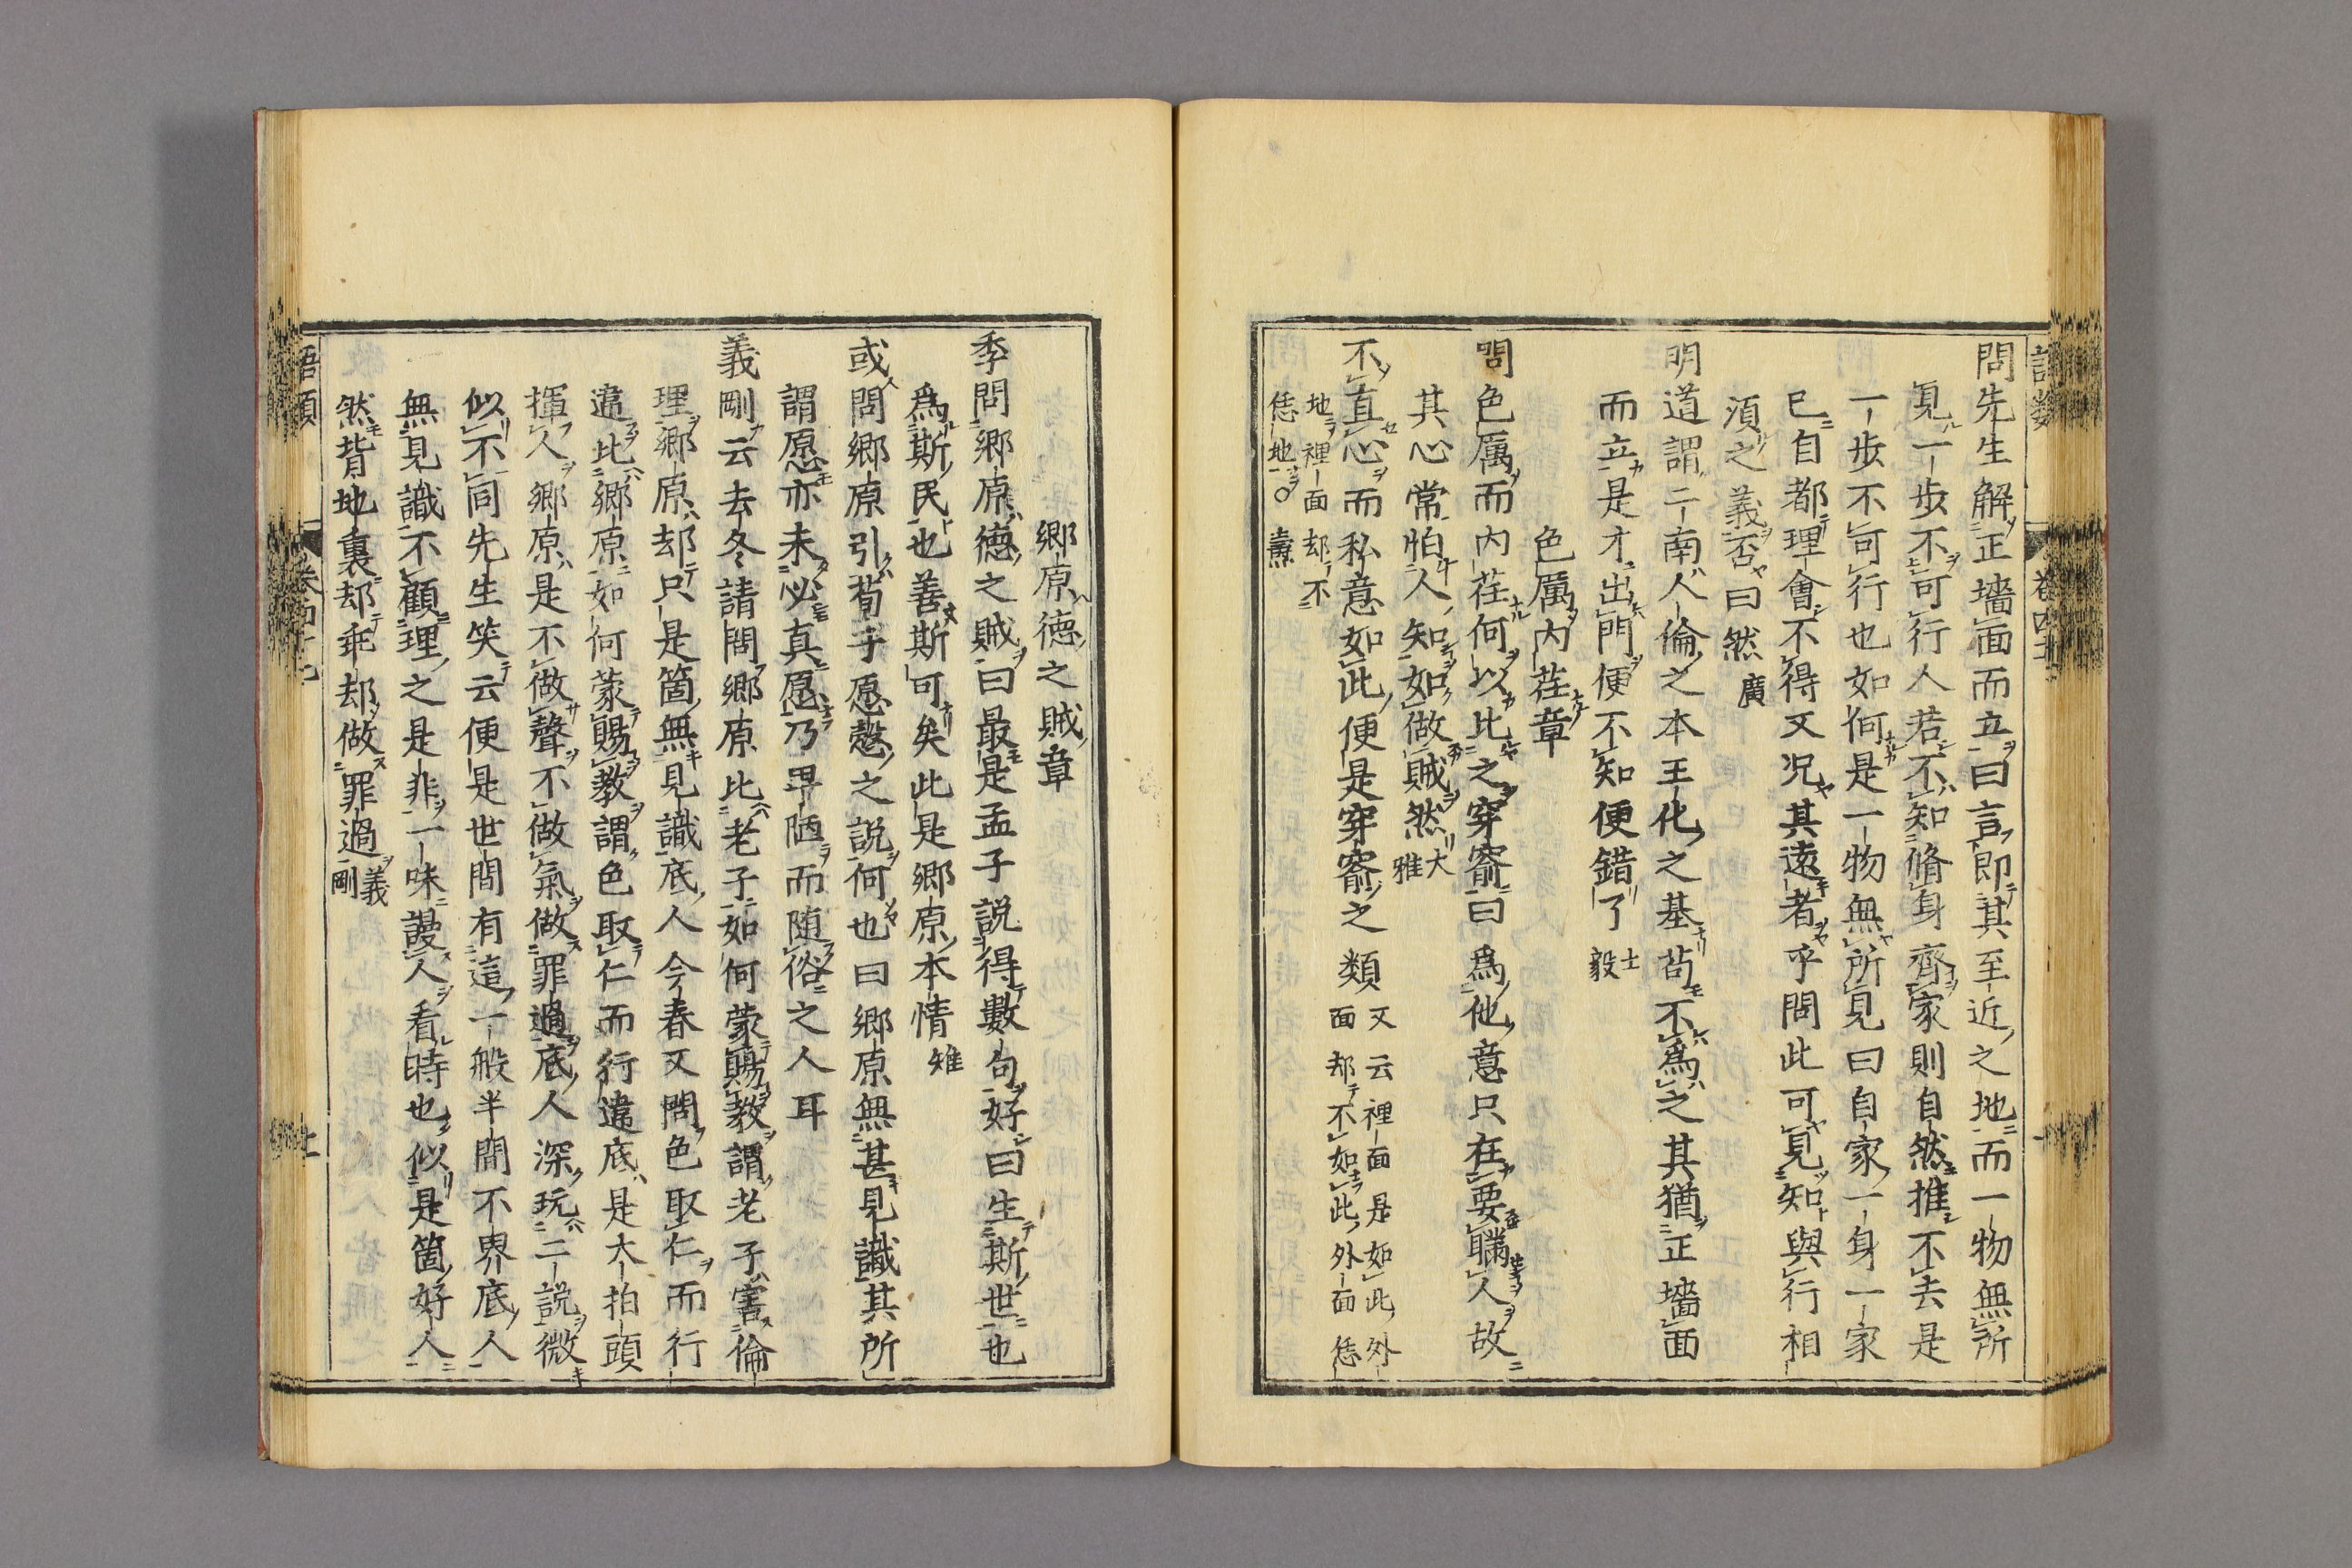 問先生解正墻面而立曰言即其至近之地而一物無所
見一歩不可行人若不知脩身齊家則自然推不去是
一歩不可行也如何是一物無所見曰自家一身一家
已自都理會不得又况其遠者乎問此可見知與行相
須之義否曰然 廣
明道謂二南人倫之本王化之基苟不為之其猶正墻面
而立是才出門便不知便錯了 士毅
色厲內荏章
問色厲而內荏何以比之穿窬曰為他意只在要瞞人故
其心常怕人知如做賊然 大雅
不直心而私意如此便是穿窬之類 又云裡面是如此外面却不如此外面恁
地裡面却不恁地○燾
鄉原德之賊章
李問鄉原德之賊曰最是孟子說得數句好曰生斯世也
為斯民也善斯可矣此是鄉原本情 雉
或問鄉原引荀子愿慤之說何也曰鄉原無甚見識其所
謂愿亦未必真愿乃卑陋而随俗之人耳
義剛云去冬請問鄉原比老子如何蒙賜教謂老子害倫
理鄉原却只是箇無見識底人今春又問色取仁而行
違比鄉原如何蒙賜教謂色取仁而行違底是大拍頭
揮人鄉原是不做聲不做氣做罪過底人深玩二說微
似不同先生笑云便是世間有這一般半間不界底人
無見識不顧理之是非一味謾人看時也似是箇好人
然背地裏却乖却做罪過 義剛
語類 卷四十七